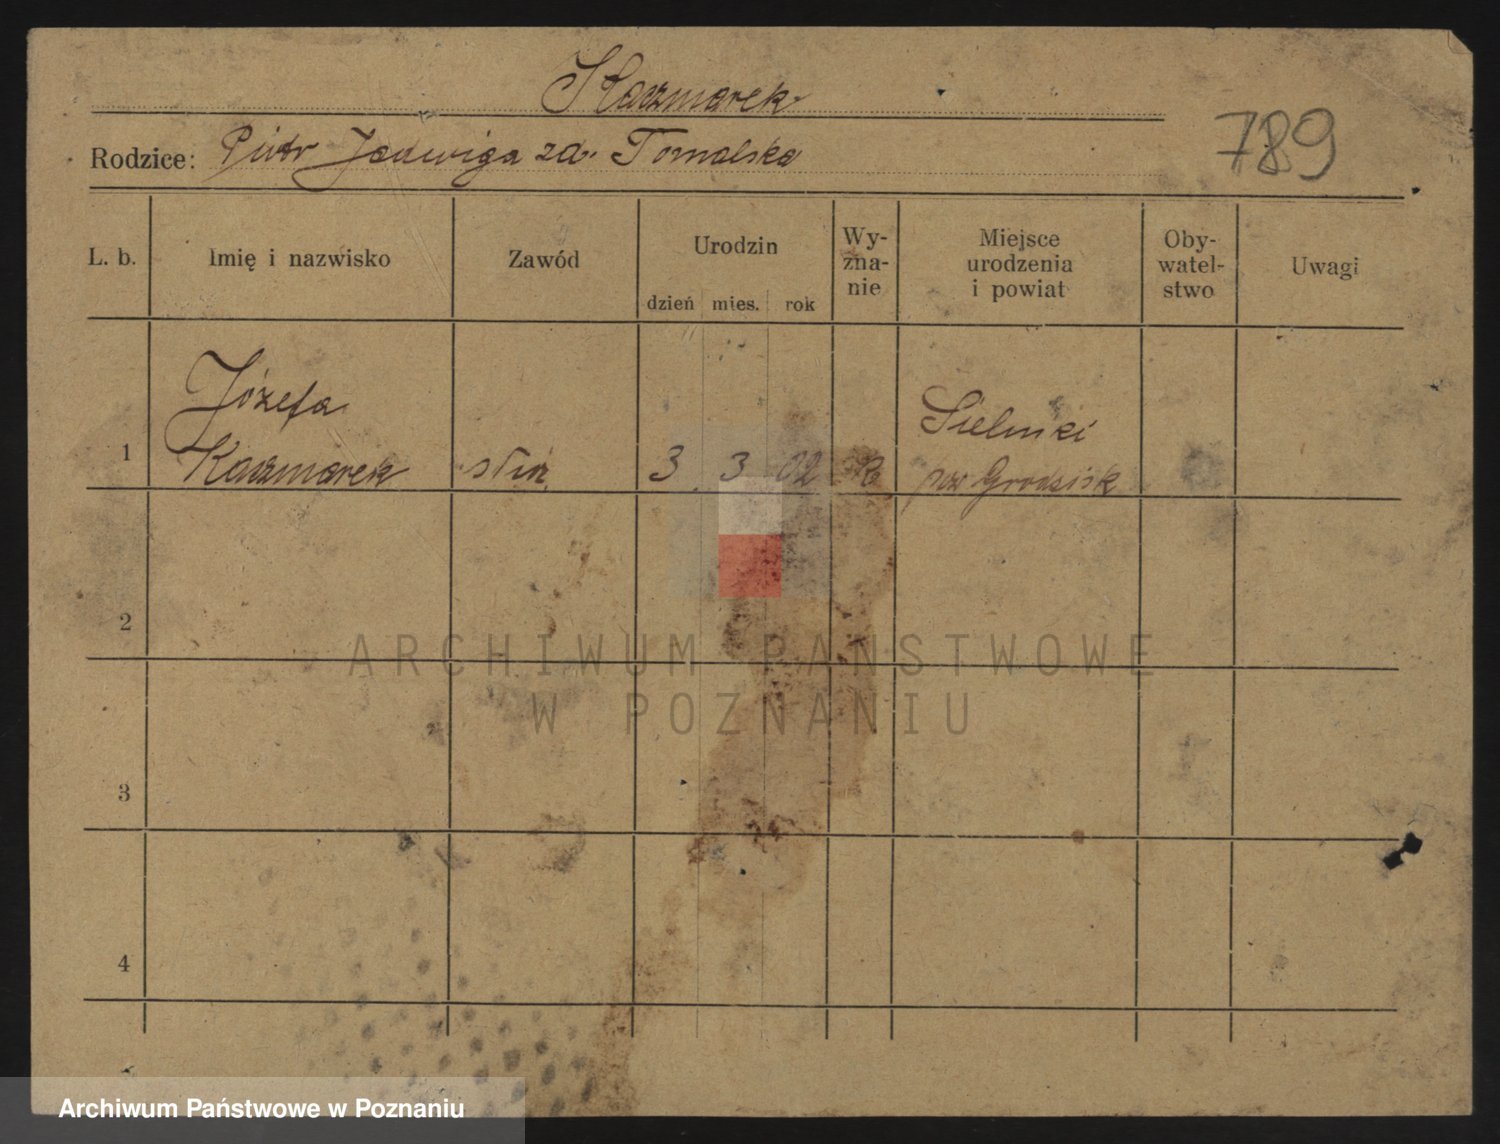 Kaczmarek
789
Rodzice: Piotr Jadwiga zd. Tomalska
L. b. Imię i nazwisko Zawód Urodzin dzień mies. rok Wy-zna-nie Miejsce urodzenia i powiat Oby-watel-stwo Uwagi
Józefa
Kaczmarek
1 służ. 3 3 02 R
Sielinki
pow Grodzisk
2
3
4
ARCHIWUM PAŃSTWOWE
W POZNANIU
Archiwum Państwowe w Poznaniu